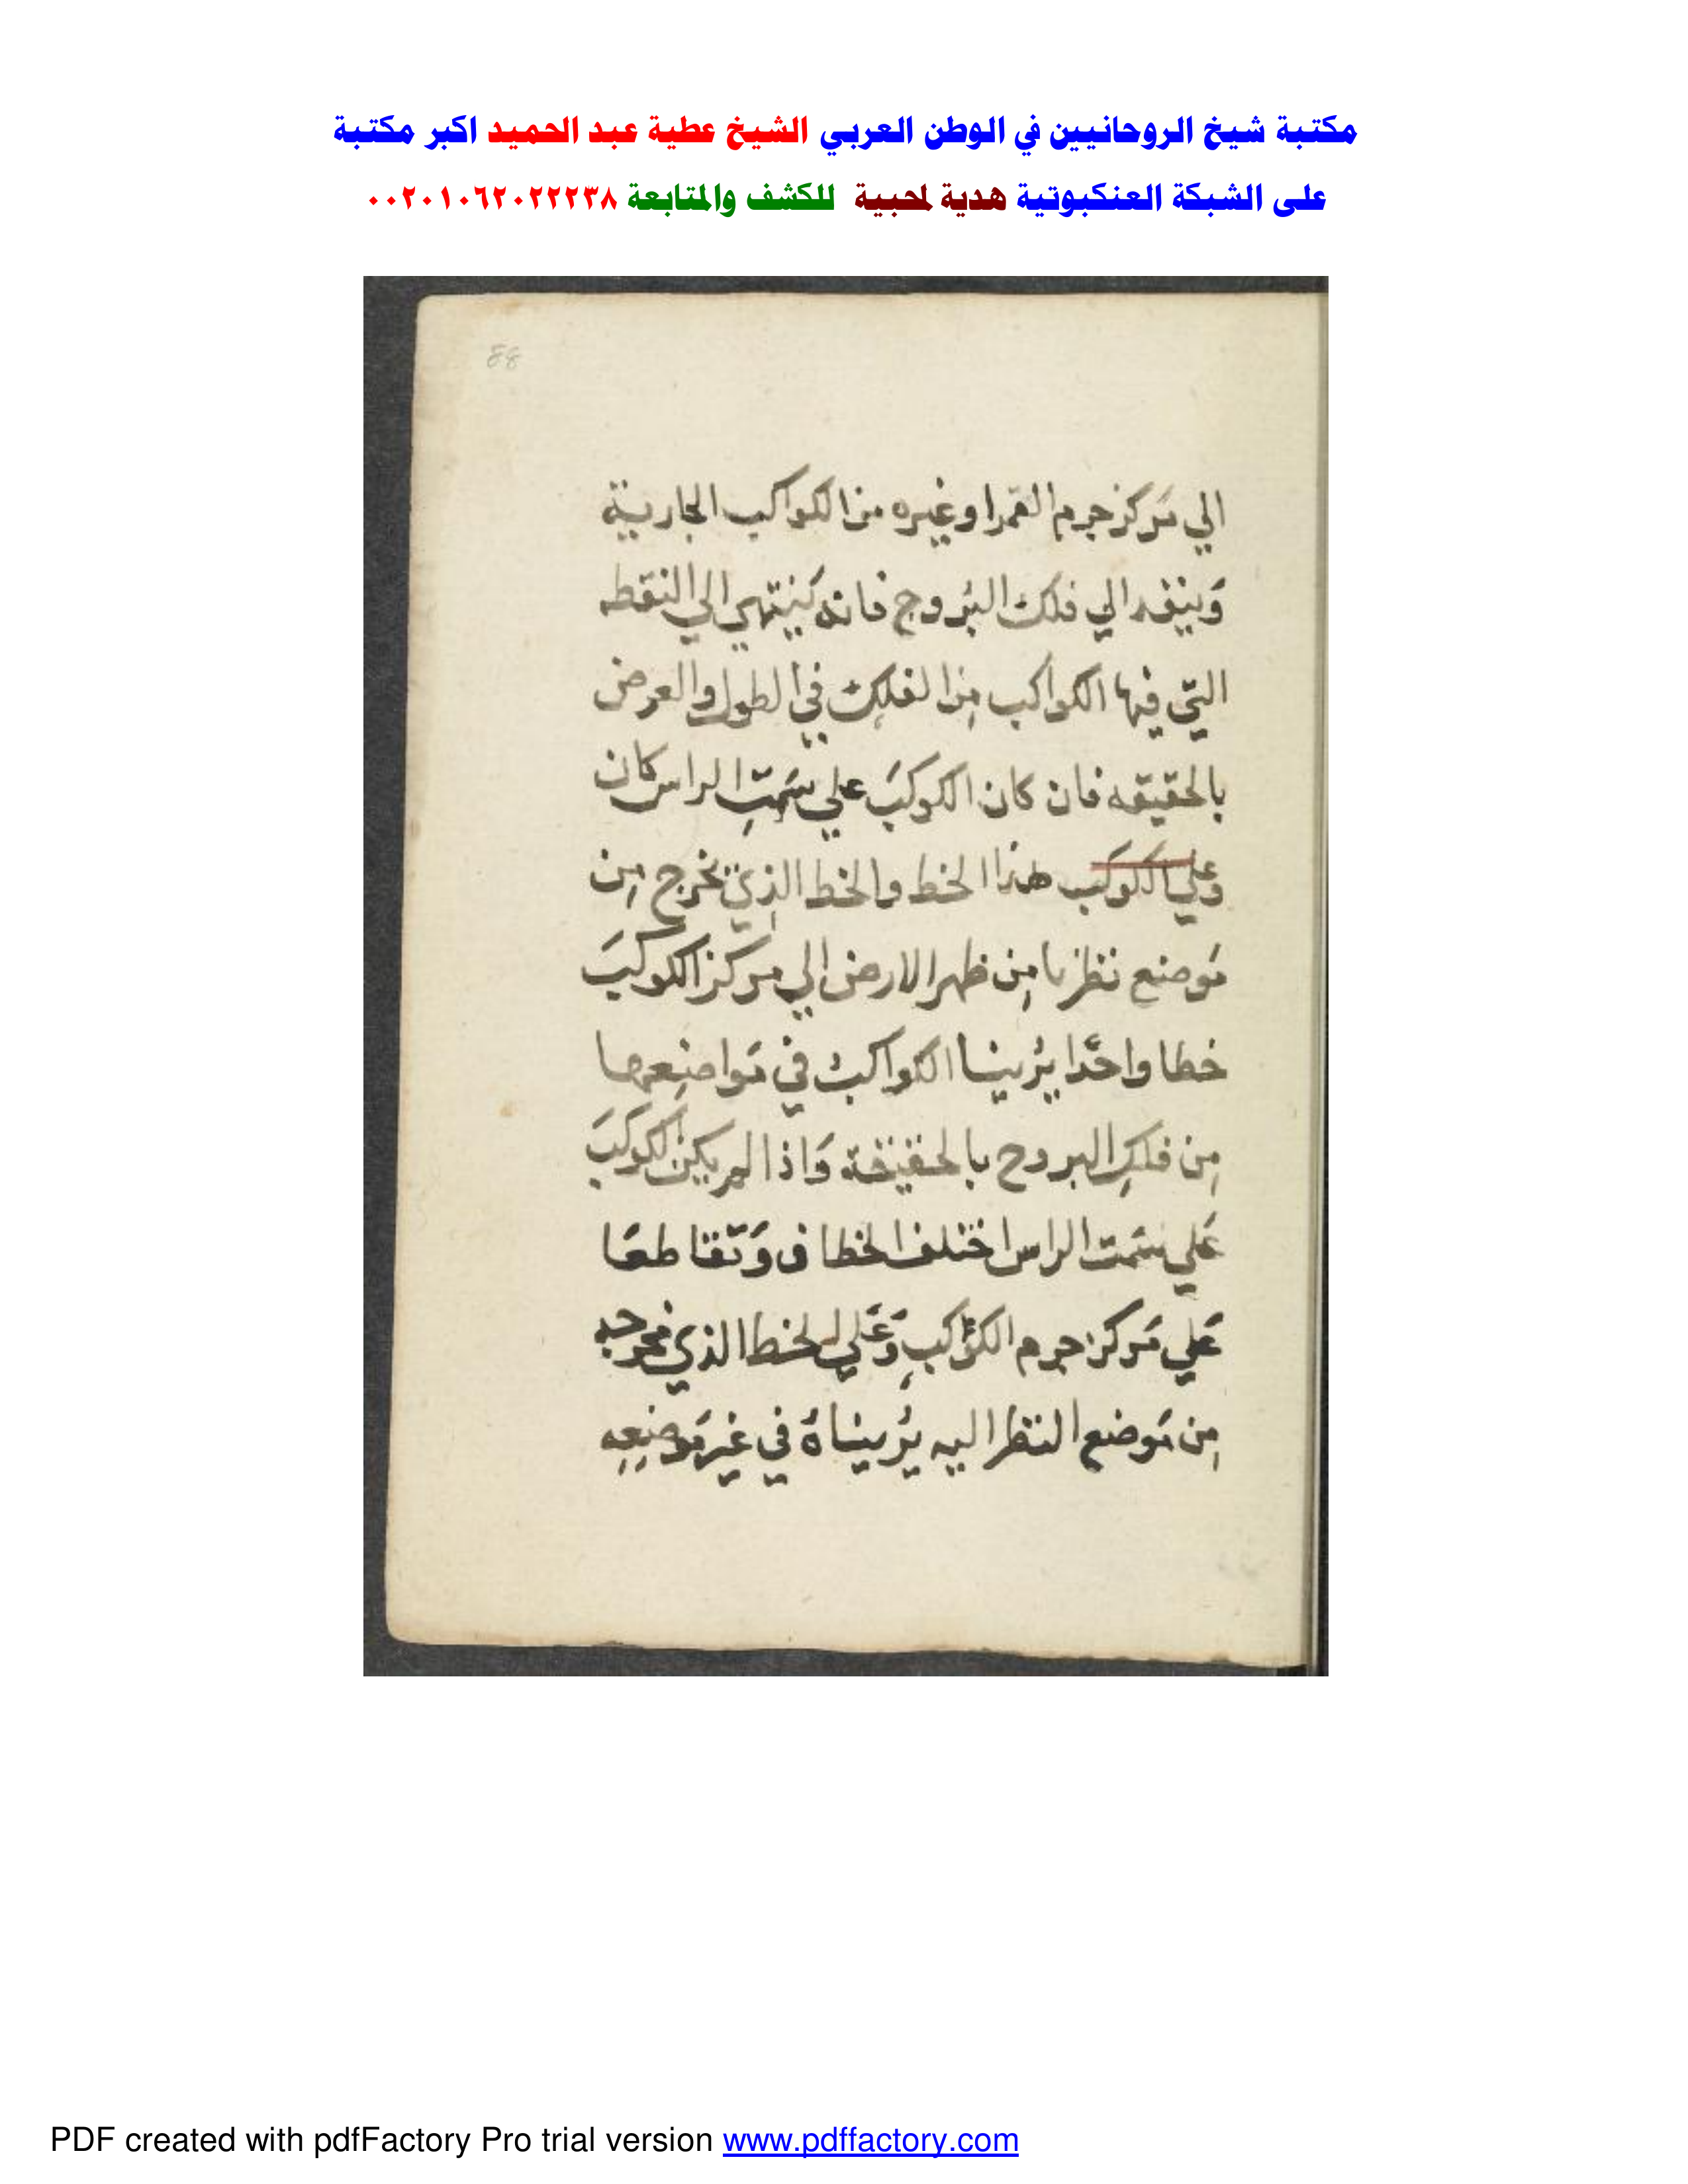 مكتبة شيخ الروحانيين في الوطن العربي الشيخ عطية عبد الحميد اكبر مكتبة
على الشبكة العنكبوتية هدية لمحبية للكشف والمتابعة ٠٠٢٠١٠٦٢٠٢٢٢٣٨
88
الي مَركز جرم القمر او غيره من الكواكب الجارية
وَينفد الي فلك البُروج فانه ينتهي الي النقطه
التي فيها الكواكب مِن الفلكِ في الطول والعرض
بالحقيقه فان كان الكوكبَ علي سَمتِ الراس كان
وعلي الكوكب هذا الخط والخط الذِي يخرج مِن
مَوضع نظرنا مِن ظهر الارض الي مركز الكوكبَ
خطا واحَدا يُرينا الكواكبُ في مَواضِعها
مِن فلكِ البروج بالحقيقة وَاذا لم يكن الكوكبَ
عَلي سَمت الراس اختلف الخطان وَتَقاطعَا
عَلي مَركز جرم الكوَاكبِ وَعَلي الخط الذي مخرجه
مِن مَوضع النظر اليه يُريناهُ في غيرمَوضِعِه
PDF created with pdfFactory Pro trial version www.pdffactory.com